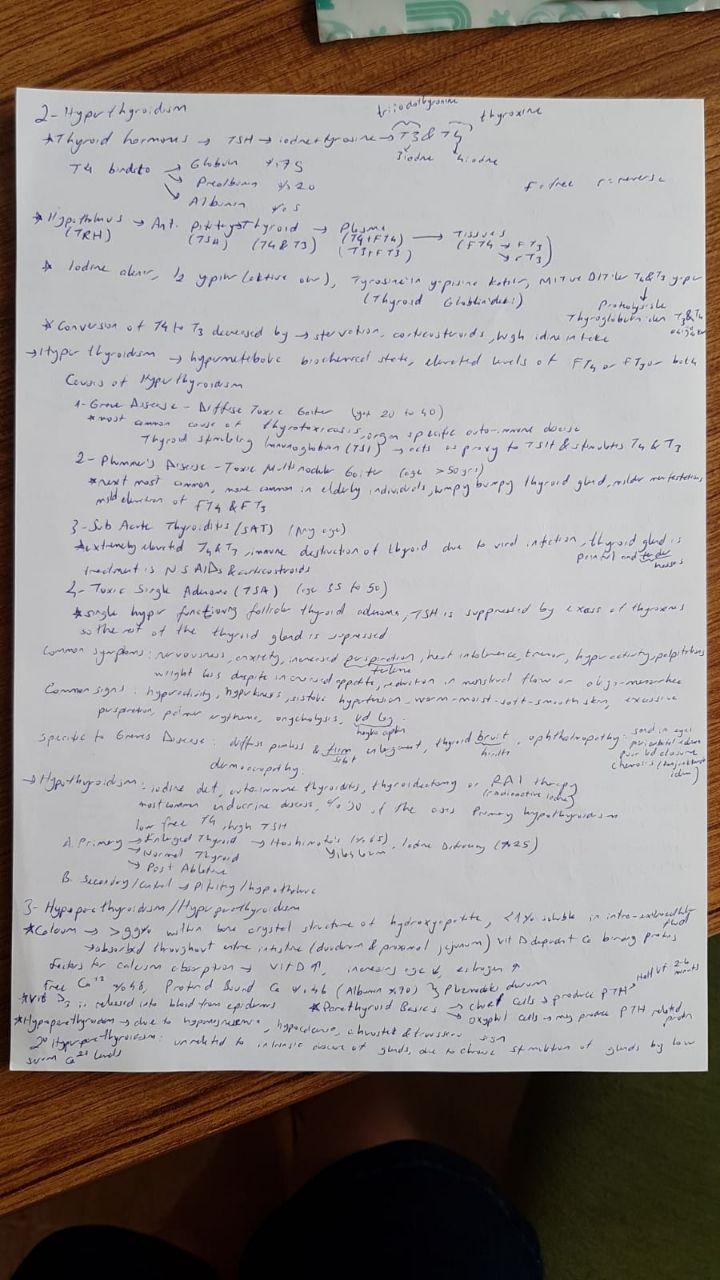 2- Hyperthyroidism
triiodothyronine
thyroxine
*Thyroid hormones → TSH → iodine+tyrosine → T3 & T4
3iodine 4iodine
T4 bindsto → Globulin %75
→ Prealbumin %20
→ Albumin %5
F=free r=reverse
*Hypothalmus → Ant. Pituitary → Thyroid → Plasma → Tissues
(TRH) (TSH) (T4 & T3) (T4+FT4) (FT4 → FT3)
(T3+FT3) → rT3
* Iodine alınır, I2 yapılır (aktive olur), Tyrosine'in yapısına katılır, MIT ve DIT'ler T4&T3 yapar
(Thyroid Globülindeki)
Proteolysisle
Thyroglobulin'den T3&T4
*Conversion of T4 to T3 decreased by → starvation, corticosteroids, high idine intake
→Hyper thyroidism → hypermetabolic biochemical state, elevated levels of FT4 or FT3 or both
Causes of Hyperthyroidism
1-Grave Disease - Diffuse Toxic Goiter (age 20 to 40)
*most common cause of thyrotoxicosis, organ specific auto-immune disease
Thyroid stimulating Immunoglobulin (TSI) → acts as proxy to TSH & stimulates T4 & T3
2-Plummer's Disease - Toxic Multinodular Goiter (age >50 yrs)
*next most common, more common in elderly individuals, lumpy bumpy thyroid gland, milder manifestations
mild elevation of FT4 & FT3
3-Sub Acute Thyroiditis (SAT) (Any age)
*extremely elevated T4&T3, immune destruction of thyroid due to viral infection, thyroid gland is
painful and tender
treatment is NSAIDs & corticosteroids
hassas
4- Toxic Single Adenoma (TSA) (age 35 to 50)
*single hyper functioning follicular thyroid adenoma, TSH is suppressed by excess of thyroxines
so the rest of the thyroid gland is supressed
Common symptoms: nervousness, anxiety, increased perspiration, heat intolerence, tremor, hyperactivity, palpitations
terleme
weight loss despite increased appetite, reduction in menstrual flow or oligo-menorrhea
Common signs: hyperactivity, hyperkinesis, systolic hypertension, warm-moist-soft-smooth skin, excessive
perspiration, palmar erythema, onycholysis, lid lag
Specific to Graves Disease: diffuse painless & firm enlargement, thyroid bruit, ophthalmopathy: sand in eyes
sert
periorbital edema
poor lid closure
chemosis
dermoacropathy
→Hypothyroidism: iodine def, autoimmune thyroiditis, thyroidectomy or RAI therapy
(radioactive iodine)
most common endocrine disease, %90 of the cases Primary hypothyroidism
low free T4, high TSH
A. Primary → Enlarged Thyroid → Hashimoto's (%65), Iodine Deficiency (%25)
→ Normal Thyroid
→ Post Ablative
B. Secondary/Central → Pituitary/hypothalamic
3- Hypoparathyroidism/Hyperparathyroidism
*Calcium → >99% within bone crystal structure of hydroxyapatite, <1% soluble in intra-extracellular fluid
→absorbed throughout entire intestine (duodenum & proximal jejunum) vit D dependent Ca binding proteins
factors for calcium absorption → Vit D ↑, increasing age ↓, estrogen ↑
free Ca+2 %48, Protein Bound Ca %46 (Albumin %70)
*Vit D3 is released into blood from epidermis *Parathyroid Basics → chief cells → produce PTH → Half life 2-6 minutes
→ oxyphil cells → may produce PTH related protein
*Hypoparathyroidism → due to hypomagnesemia, hypocalcemia, chvostek & trousseau sign
2° Hyperparathyroidism: unrelated to intrinsic disease of glands, due to chronic stimulation of glands by low
serum Ca2+ levels